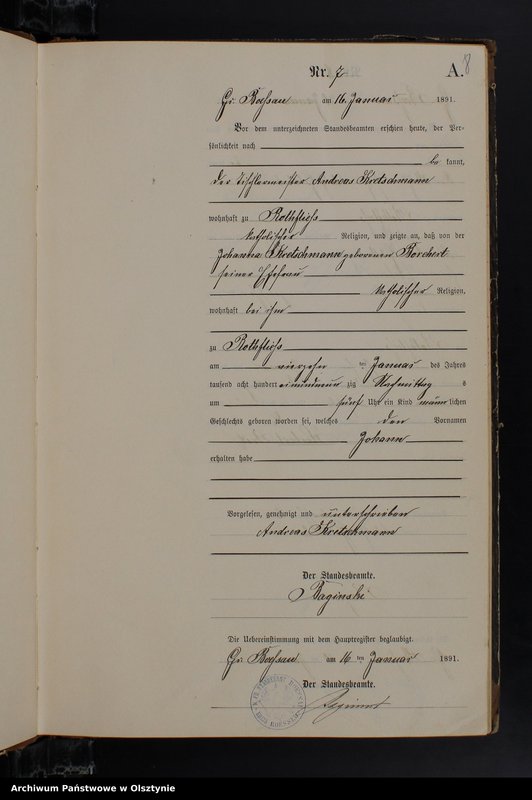 Nr. 7
A. 8
Gr. Boessau am 16. Januar 1891.
Vor dem unterzeichneten Standesbeamten erschien heute, der Per-
sönlichkeit nach
be kannt,
der Tischlermeister Andreas Kretschmann
wohnhaft zu Rothfließ
katholischer Religion, und zeigte an, daß von der
Johanna Kretschmann geborenen Borchert
seiner Ehefrau
katholischer Religion,
wohnhaft bei ihm
zu Rothfließ
am vierzehn ten Januar des Jahres
tausend acht hundert einundneun zig Nachmittag s
um fünf Uhr ein Kind männ lichen
Geschlechts geboren worden sei, welches den Vornamen
Johann
erhalten habe
Vorgelesen, genehmigt und unterschrieben
Andreas Kretschmann
Der Standesbeamte.
Baginski
Die Uebereinstimmung mit dem Hauptregister beglaubigt.
Gr. Boessau am 16 ten Januar 1891.
Der Standesbeamte.
Archiwum Państwowe w Olsztynie